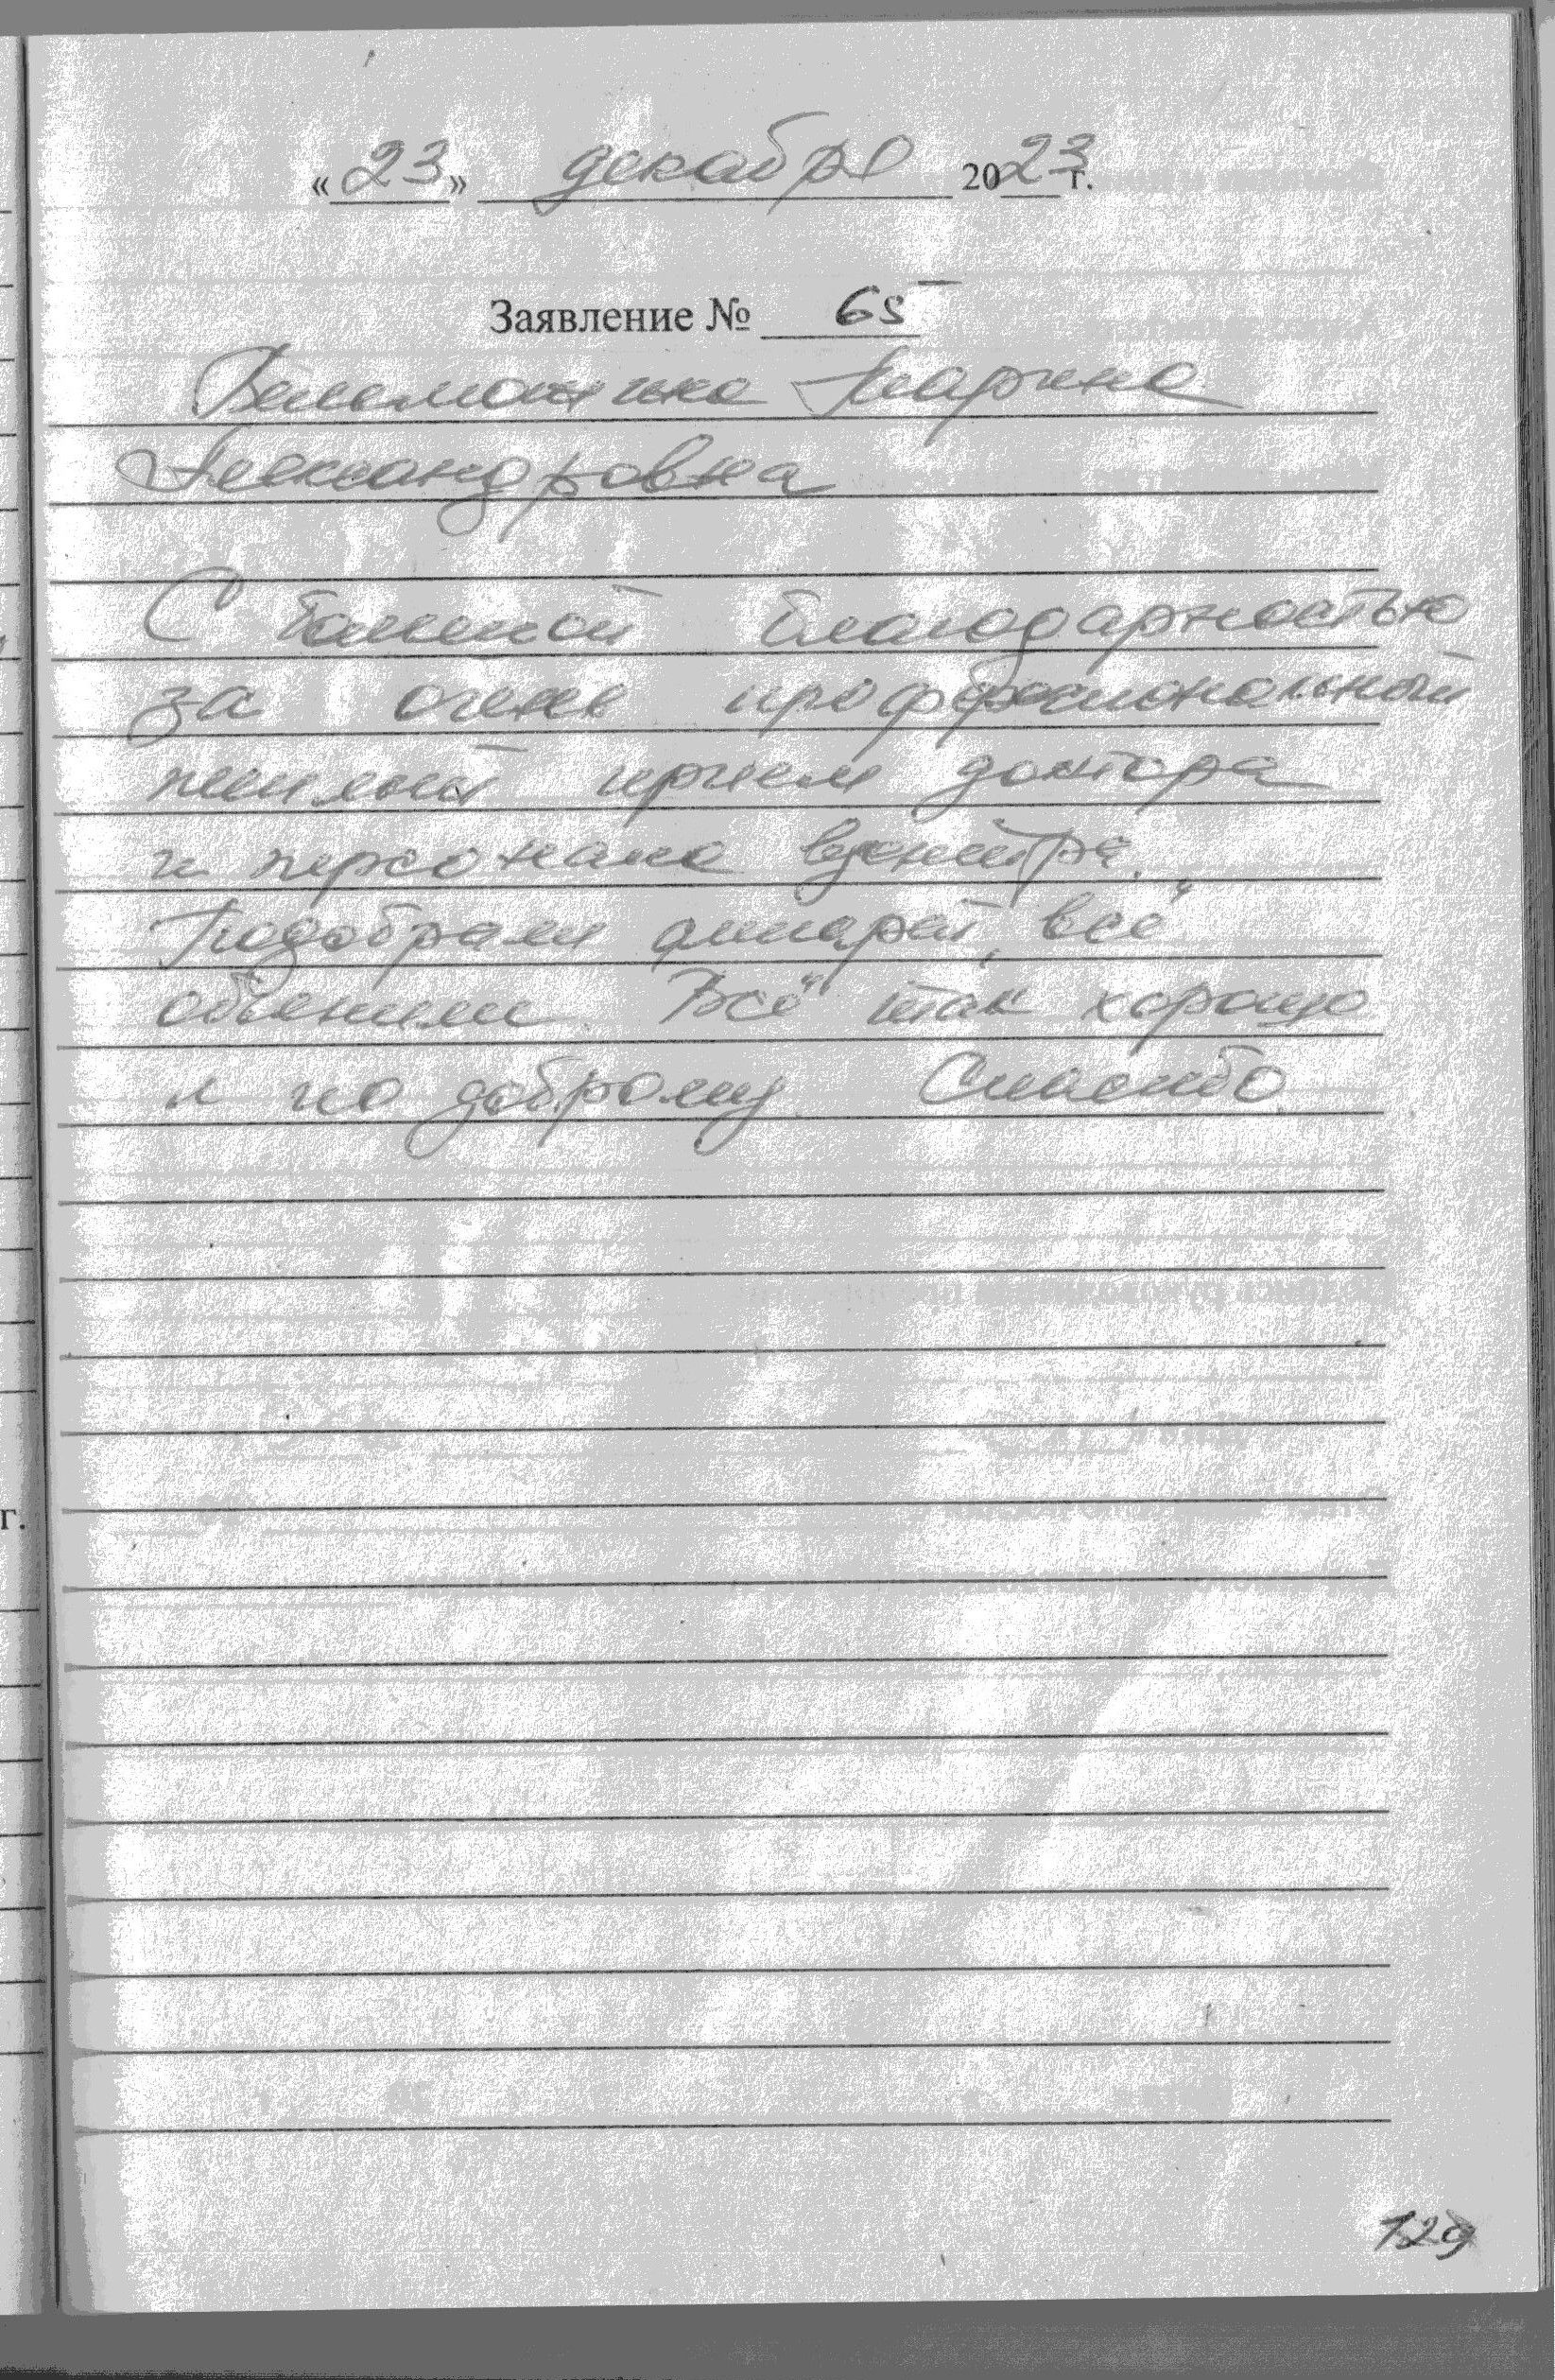 «23» декабря 2023 г.
Заявление № 65
Марина
Александровна
С большой благодарностью
за очень профессиональный
милый прием доктора
и персонала центра.
Подобрали аппарат, всё
объяснили. Всё так хорошо
и по доброму. Спасибо.
г.
129